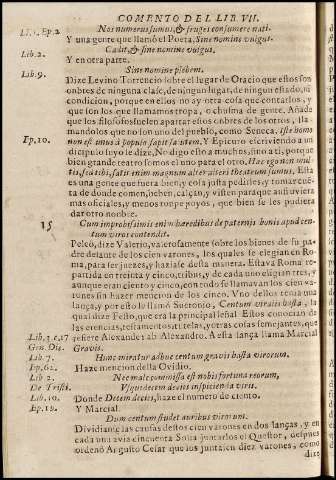 COMENTO DEL LIB. VII.
Li. 1. Ep. 2 Nos numerus sumus, & fruges consumere nati.
Y una gente que llamó el Poeta, Sine nomine vulgus.
Lib. 2. Cadit, & sine nomine vulgus.
Y en otra parte.
Lib. 9. Sine nomine plebem.
Dize Levino Torrencio sobre el lugar de Oracio que estos son
onbres de ninguna clase, de ningun lugar, de ningun estado, ni
condicion, porque en ellos no ay otra cosa que contarlos, y
que son los que llamamos tropa, o chusma de gente. Añade
que los filosofos suelen apartar estos onbres de los otros, lla
mandolos que no son uno del pueblo, como Seneca. Iste homo
Ep. 10. non est unus à populo sapit sat
Epicuro escriviendo a un
dicipulo suyo le dize, No digo esto a muchos, sino a ti, porque
bien grande teatro somos el uno para el otro. Hac ego non mul
tis, sed tibi, satis enim magnum alter alteri theatrum sumus. Esta
es una gente que fuera bien, y cosa justa pedirles, y tomar cuẽ
ta de donde comen, beben, calçan, y visten para que anduviera
mas oficiales, y menos rompe poyos, que bien se les pudiera
dar otro nonbre.
15 Cum improbissimis enim hæredibus de paternis bonis apud cen-
tum viros contendit.
Peleó, dize Valerio, valerosamente sobre los bienes de su pa-
dre delante de los cien varones, los quales se elegian en Ro
ma, para ser juezes, y hazíase desta manera. Estava Roma re-
partida en treinta y cinco, tribus, y de cada uno eligian tres, y
aunque eran ciento y cinco, con todo se llamavan los cien va-
rones sin hazer mencion de los cinco. Uno dellos tenia una
lança, y por esto llamó Suetonio, Centum viralis hasta, la
qual dize Festo, que era la principal señal. Estos conocian de
las erencias, testamentos, tutelas, y otras cosas semejantes, que
Lib. 3. c. 17 refiere Alexander ab Alexandro. A esta lança llama Marcial
Gen. Die. Gravis.
Lib. 7. Hunc miratur adhuc centum gravis hasta virorum.
Ep. 62. Haze mencion della Ovidio.
Lib. 2. Nec male commissa est nobis fortuna reorum,
De Trist. Vsque decem decies inspicienda viris.
Lib. 10. Donde Decem decies, haze el numero de ciento.
Ep. 19. Y Marcial.
Dum centum studet auribus virorum.
Dividianse las causas destos cien varones en dos lanças, y en
cada una avia cincuenta. Solia juntarlos el Questor, despues
ordenó Augusto Cesar que los juntasen diez varones, como
dize,